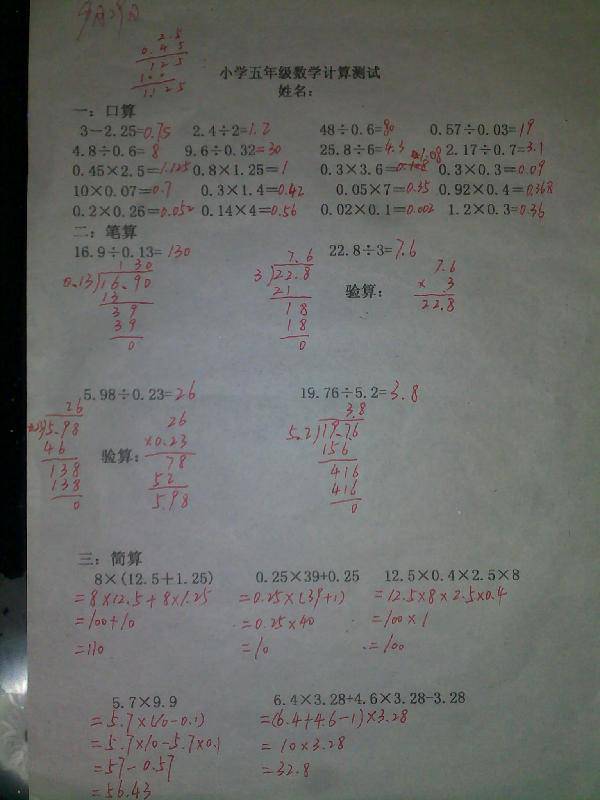 9月29日
2.5
0.45
125
100
1.125
小学五年级数学计算测试
姓名:
一: 口算
3-2.25=0.75 2.4÷2=1.2 48÷0.6=80 0.57÷0.03=19
4.8÷0.6=8 9.6÷0.32=30 25.8÷6=4.3 2.17÷0.7=3.1
0.45×2.5=1.125 0.8×1.25=1 0.3×3.6=1.08 0.3×0.3=0.09
10×0.07=0.7 0.3×1.4=0.42 0.05×7=0.35 0.92×0.4=0.368
0.2×0.26=0.052 0.14×4=0.56 0.02×0.1=0.002 1.2×0.3=0.36
二: 笔算
16.9÷0.13=130 22.8÷3=7.6
130 7.6 7.6
0.13 16.90 3 22.8 验算: × 3
13 21 22.8
39 18
39 18
0 0
5.98÷0.23=26 19.76÷5.2=3.8
26 26 3.8
5.98 ×0.23 5.2 19.76
46 验算: 78 156
138 52 416
138 5.98 416
0 0
三: 简算
8×(12.5+1.25) 0.25×39+0.25 12.5×0.4×2.5×8
=8×12.5+8×1.25 =0.25×(39+1) =12.5×8×2.5×0.4
=100+10 =0.25×40 =100×1
=110 =10 =100
5.7×9.9 6.4×3.28+4.6×3.28-3.28
=5.7×(10-0.1) =(6.4+4.6-1)×3.28
=5.7×10-5.7×0.1 =10×3.28
=57-0.57 =32.8
=56.43